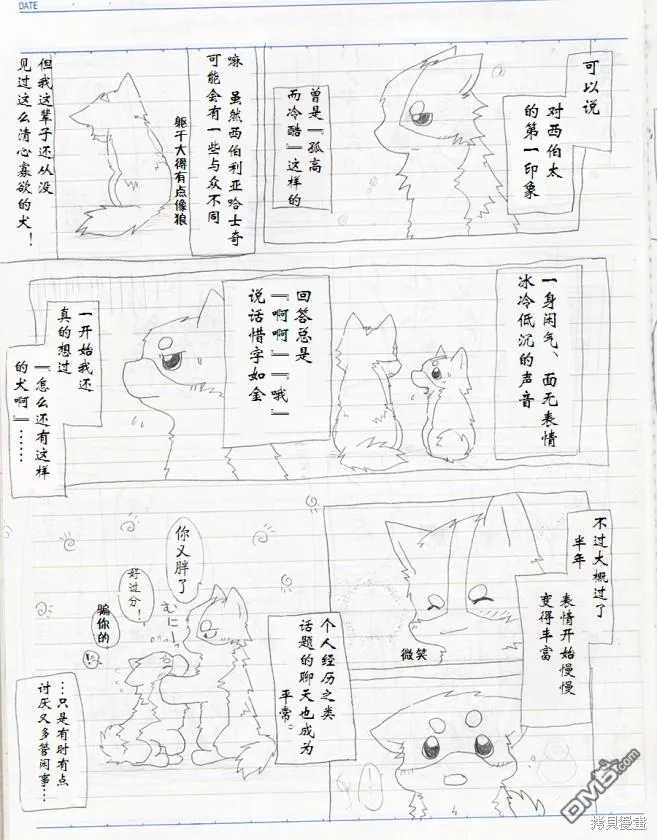 DATE
可以说
对西伯太
的第一印象
曾是『孤高
而冷酷』这样的
嘛 虽然西伯利亚哈士奇
可能会有一些与众不同
躯干大得有点像狼
但我这辈子还从没
见过这么清心寡欲的犬！
一身闲气、面无表情
冰冷低沉的声音
回答总是
『啊啊』『哦』
说话惜字如金
一开始我还
真的想过
『怎么还有这样
的犬啊』……
不过大概过了
半年
表情开始慢慢
变得丰富
微笑
个人经历之类
话题的聊天也成为
平常。
你又胖了
むにー
好过分！
骗你的
…只是有时有点
讨厌又多管闲事…
DMB.COM
拷贝漫畫